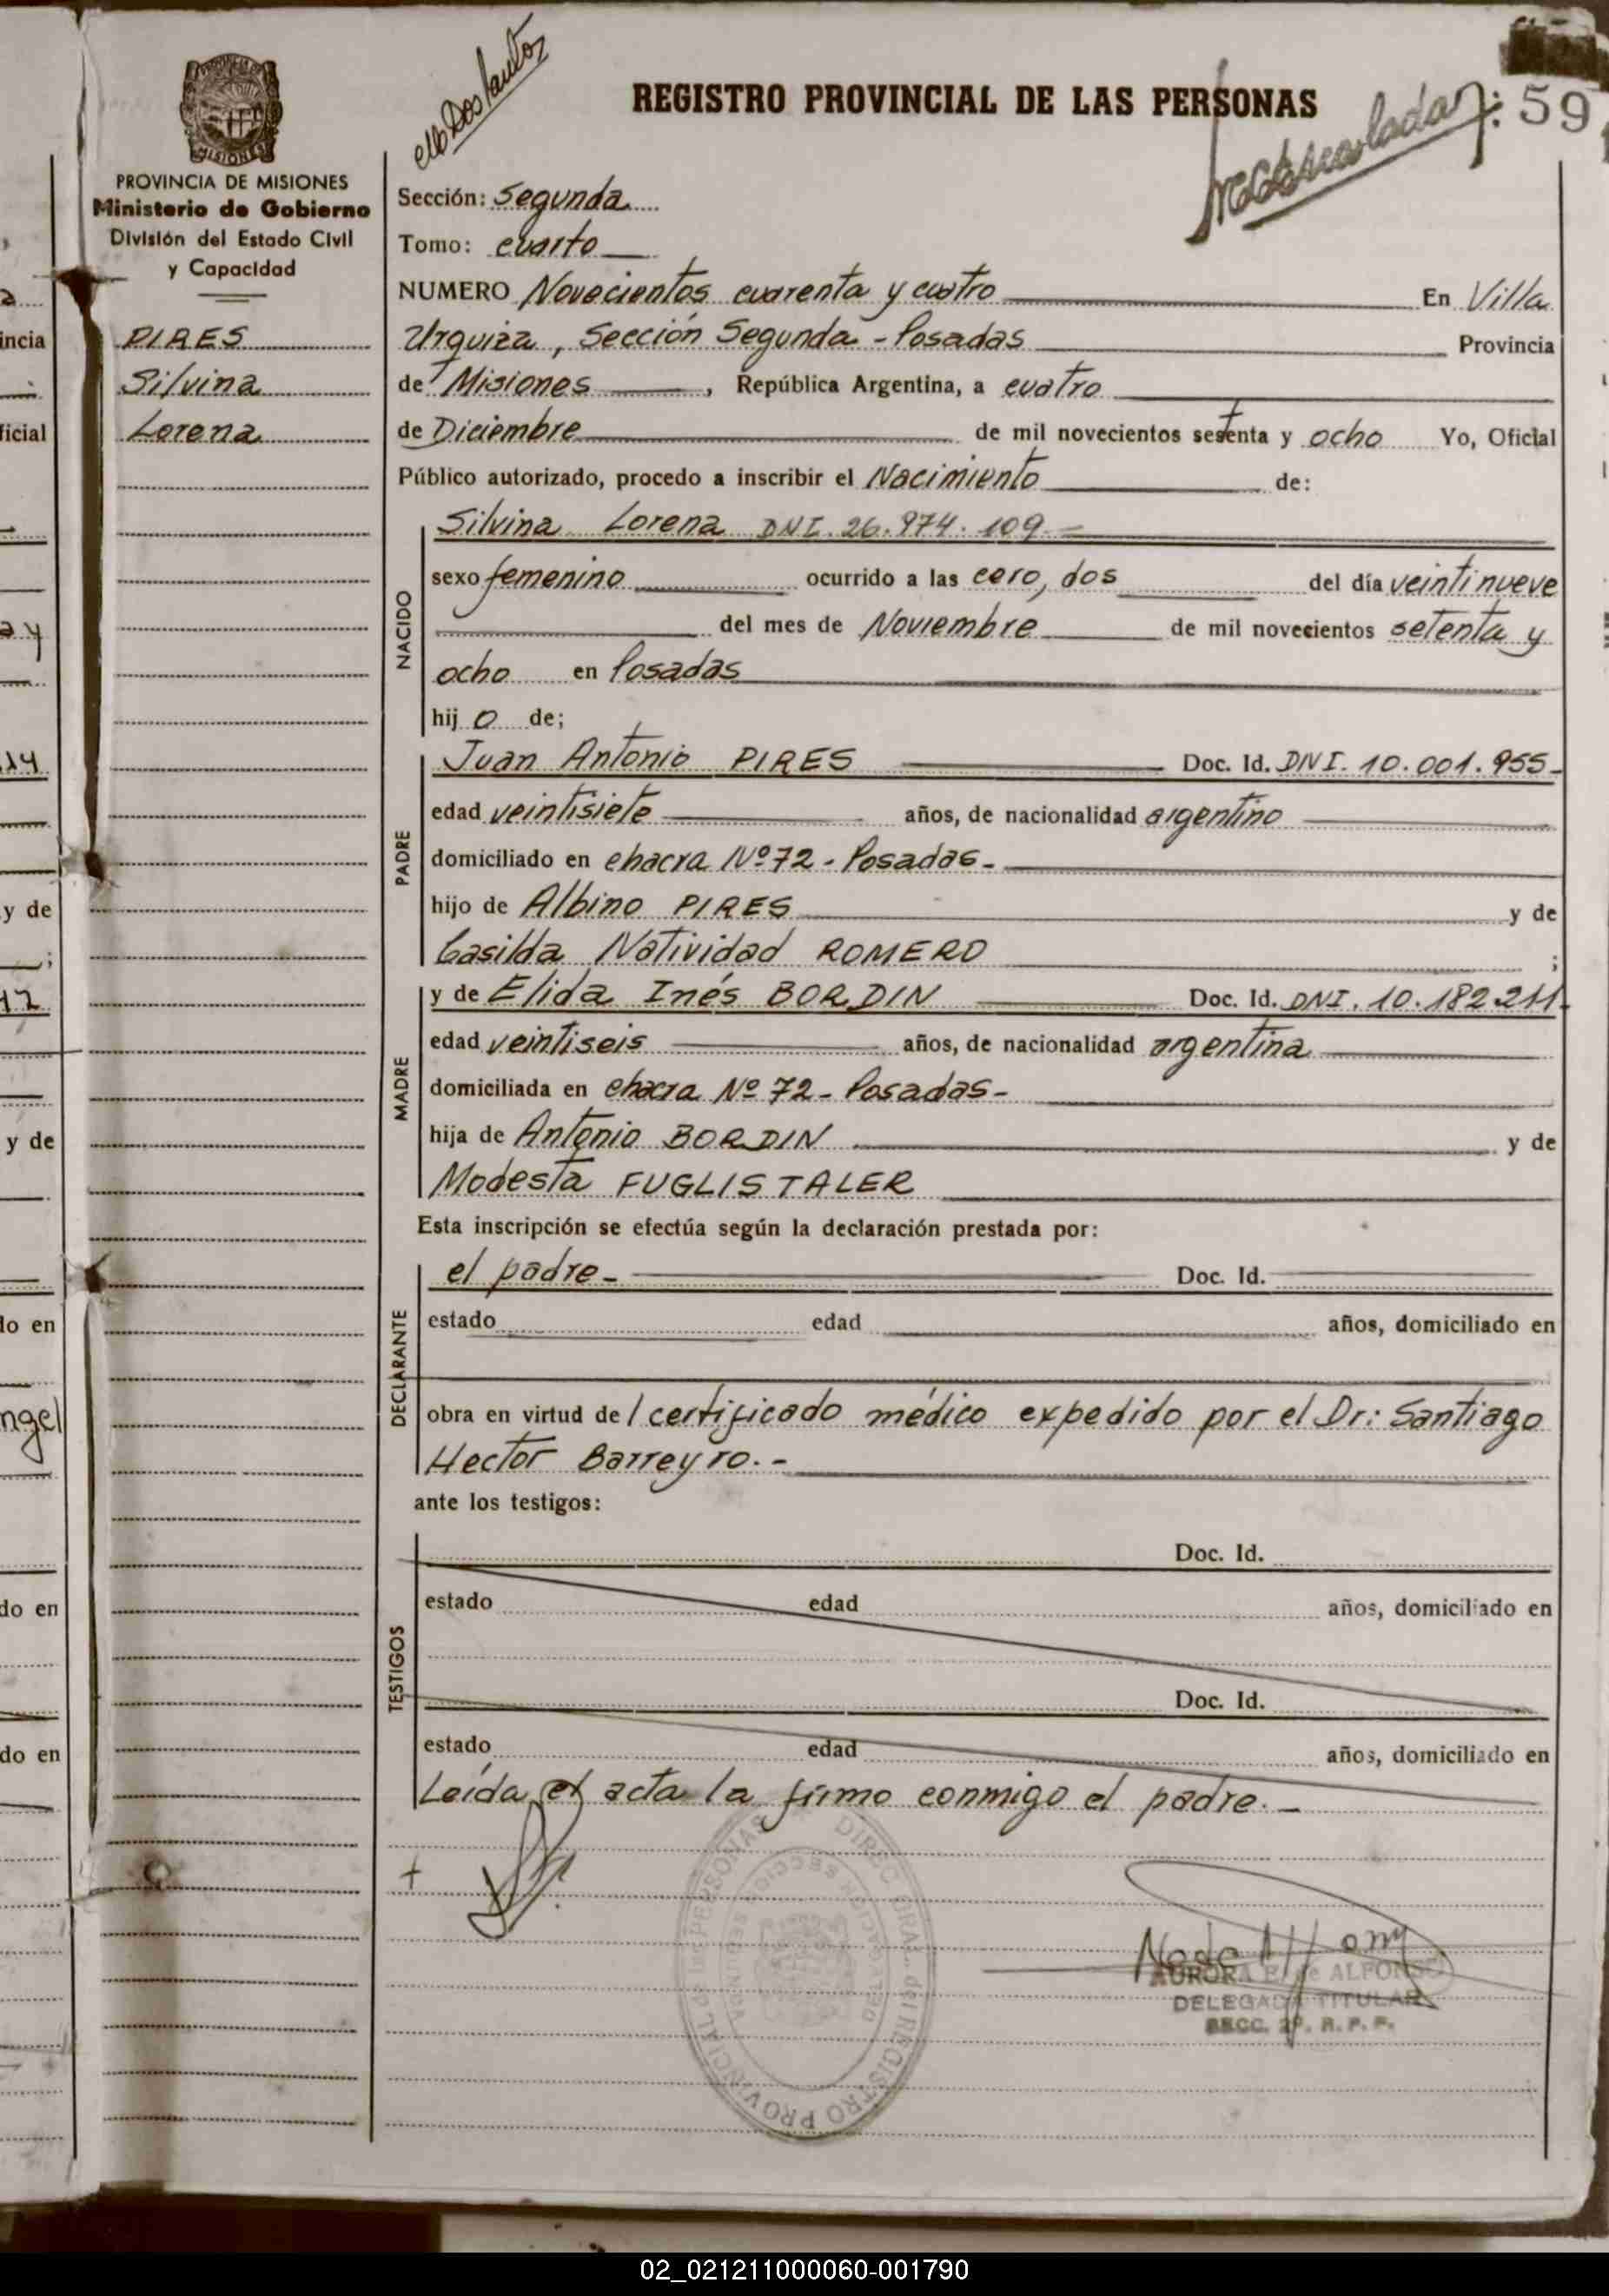 REGISTRO PROVINCIAL DE LAS PERSONAS
59
MISIONES
PROVINCIA DE MISIONES
Ministerio de Gobierno
División del Estado Civil
y Capacidad
PIRES
Silvina
Lorena
Sección: Segunda
Tomo: cuarto
NUMERO Novecientos cuarenta y cuatro En Villa
Urquiza, Sección Segunda - Posadas Provincia
de Misiones, República Argentina, a cuatro
de Diciembre de mil novecientos setenta y ocho Yo, Oficial
Público autorizado, procedo a inscribir el Nacimiento de:
NACIDO
Silvina Lorena DNI. 26.974.109.-
sexo femenino ocurrido a las cero, dos del día veintinueve
del mes de Noviembre de mil novecientos setenta y
ocho en Posadas
hij o de;
PADRE
Juan Antonio PIRES Doc. Id. DNI. 10.001.955-
edad veintisiete años, de nacionalidad argentino
domiciliado en chacra Nº 72 - Posadas-
hijo de Albino PIRES y de
Casilda Natividad ROMERO ;
MADRE
y de Elida Inés BORDIN Doc. Id. DNI. 10.182.211.
edad veintiseis años, de nacionalidad argentina
domiciliada en chacra Nº 72 - Posadas-
hija de Antonio BORDIN y de
Modesta FUGLISTALER
Esta inscripción se efectúa según la declaración prestada por:
DECLARANTE
el padre- Doc. Id.
estado edad años, domiciliado en
obra en virtud de l certificado médico expedido por el Dr: Santiago
Hector Barreyro.-
ante los testigos:
TESTIGOS
Doc. Id.
estado edad años, domiciliado en
Doc. Id.
estado edad años, domiciliado en
Leída el acta la firmo conmigo el padre.-
DIREC. GRAL. del REGISTRO PROVINCIAL de las PERSONAS
AURORA E. de ALFONSO
DELEGADA TITULAR
SECC. 2ª. R. P. P.
incia
ficial
a y
14
y de
17
y de
do en
ngel
do en
do en
02_021211000060-001790